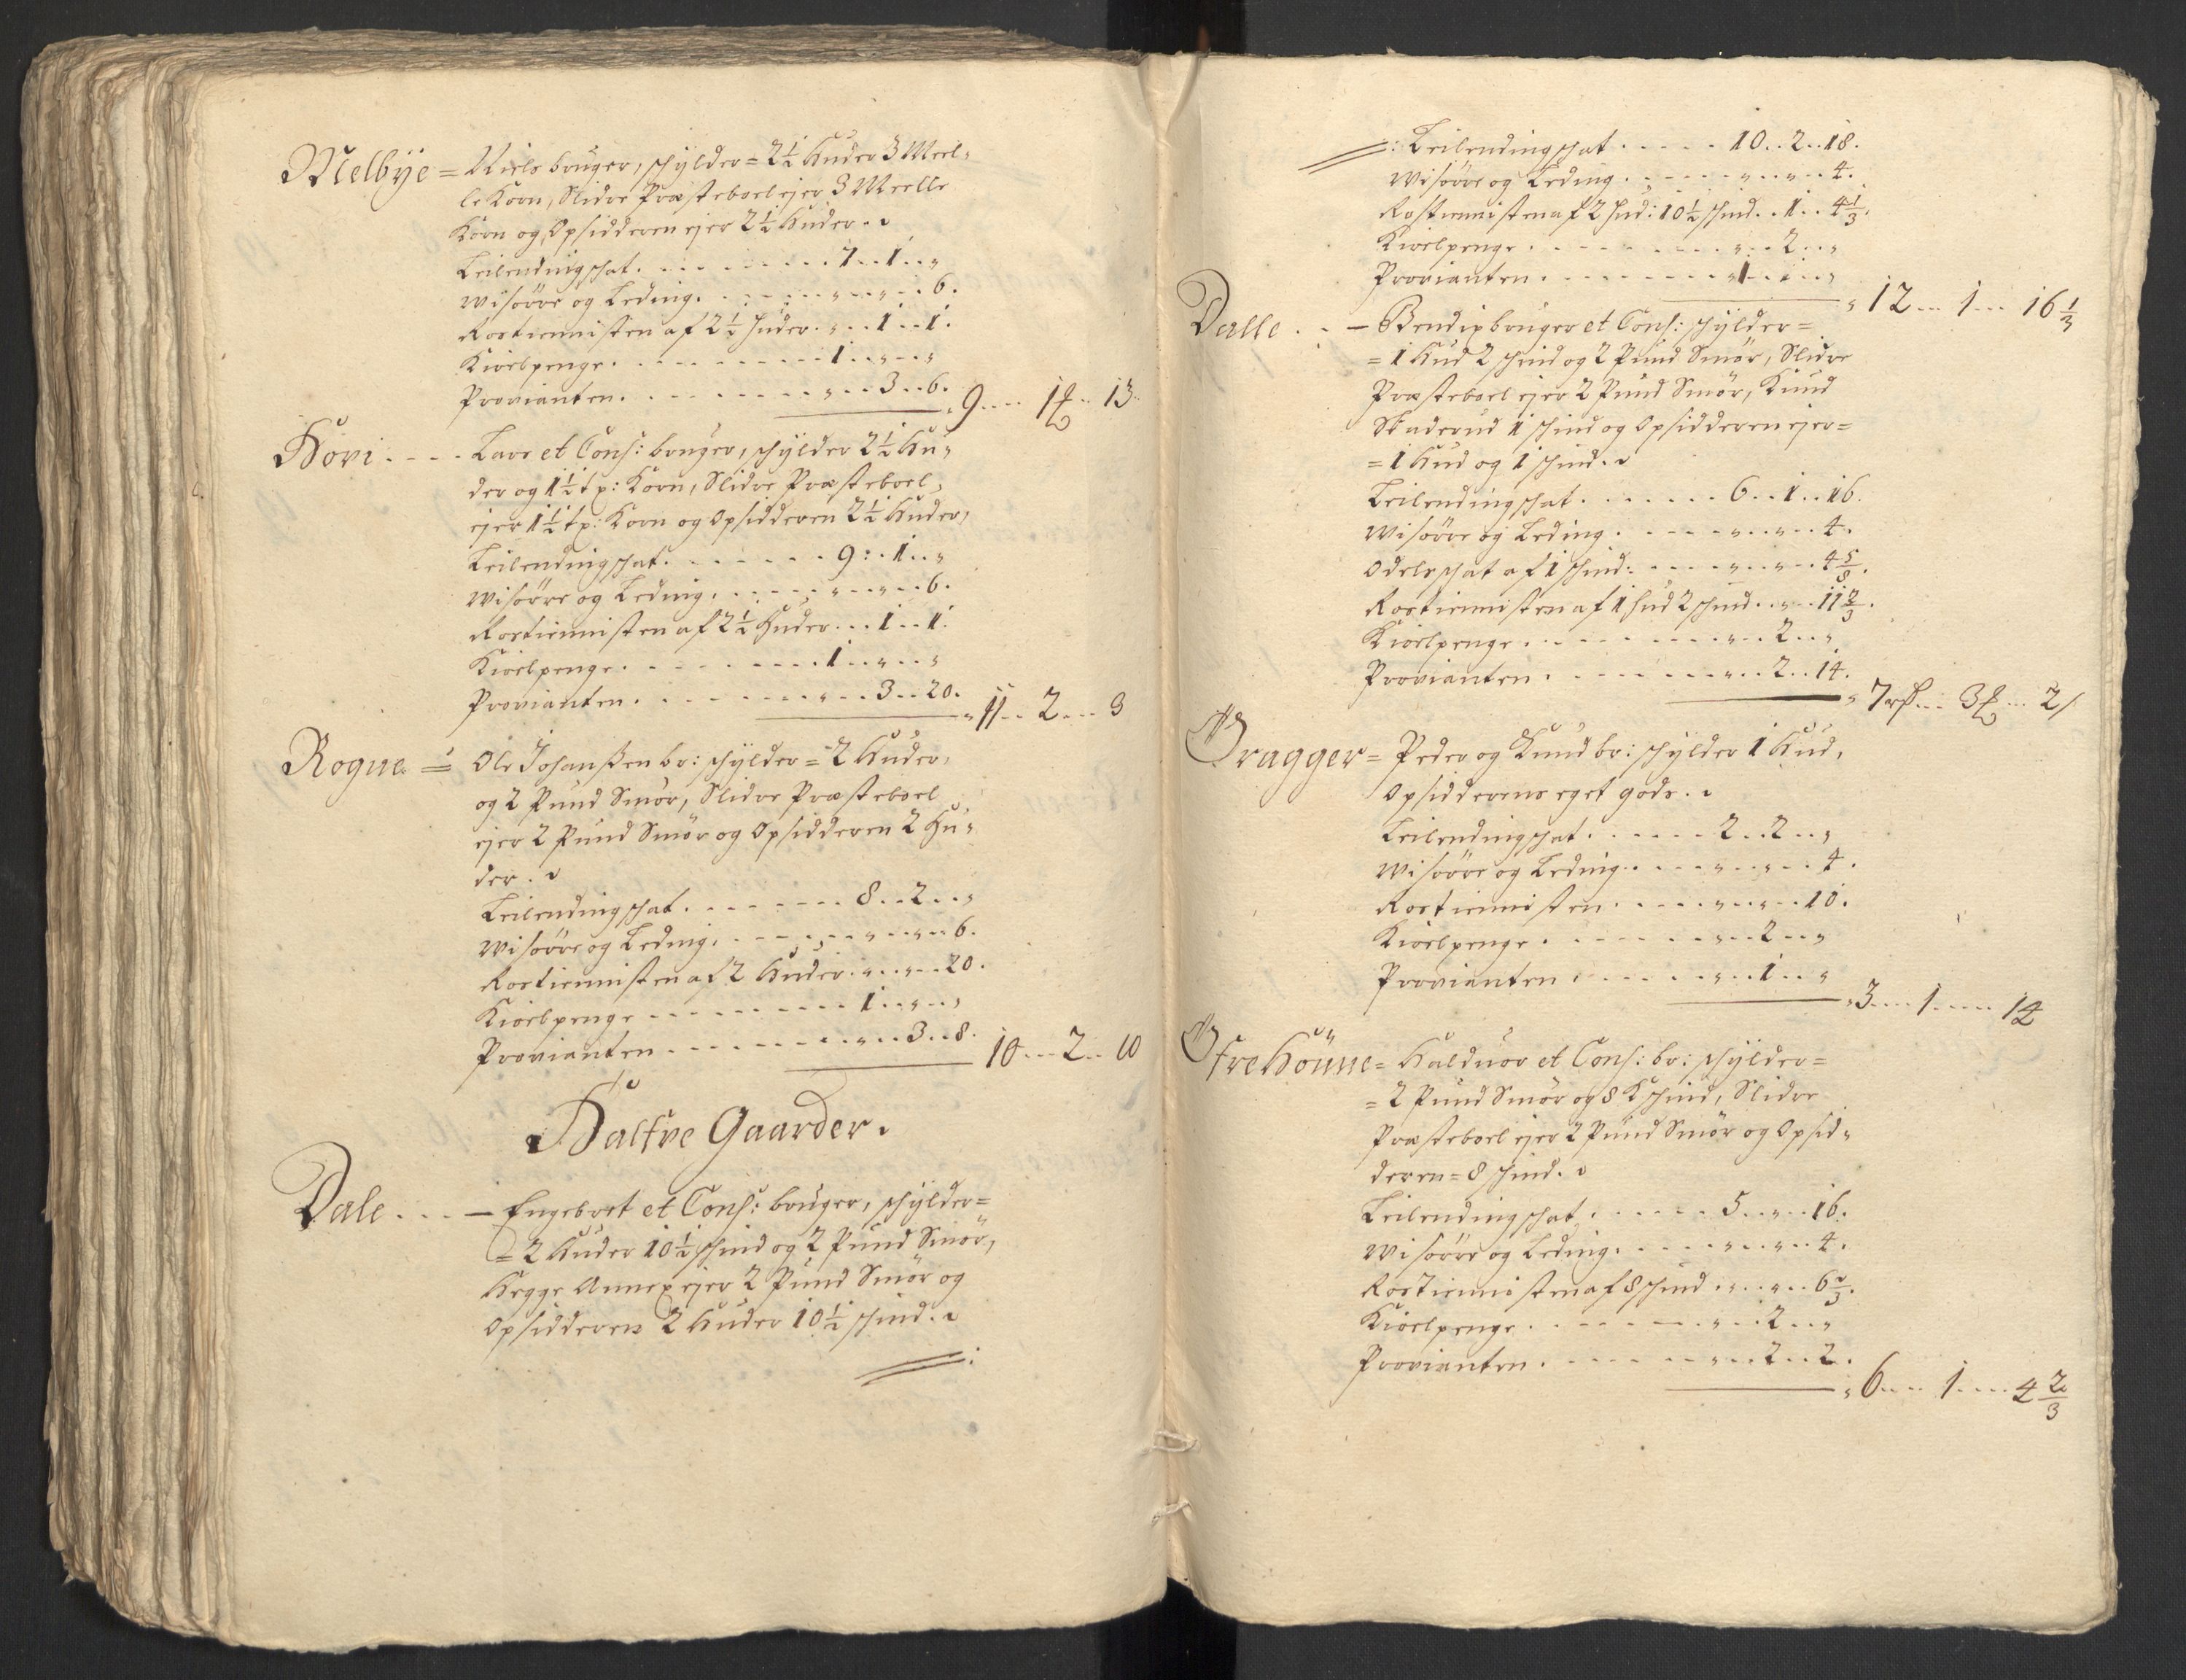 Melbÿe = Niels brüger, schÿlder = 2½ Huder 3 Meel-
le Korn, Slidre Præsteboel ejer 3 Meelle
Korn og Opsidderen ejer 2½ Huder.
Leilendingschat . . . 7 .. 1 .. "
Wisørre og Leding . . . " .. " .. 6.
Rostiennisten af 2½ Huder . " .. 1 .. 1.
Kioelpenge . . . 1 .. " .. "
Provianten . . . " .. 3 .. 6.
" 9 .... 1 .. 13
Hovi . . . Lars et Cons: brüger, schÿlder 2½ Hu-
der og 1½ tx: Korn, Slidre Præsteboel
ejer 1½ tx: Korn og Opsidderen 2½ Huder,
Leilendingschat . . . 9 .. 1 .. "
Wisørre og Leding . . . " .. " .. 6.
Rostiennisten af 2½ Huder . . . 1 .. 1.
Kioelpenge . . . 1 .. " .. "
Provianten . . . " .. 3 .. 20.
" 11 .. 2 .... 3
Rogne = Ole Johanßen br: schÿlder = 2 Huder,
og 2 Pund Smør, Slidre Præsteboel
ejer 2 Pund Smør og Opsidderen 2 Hu-
der.
Leilendingschat . . . 8 .. 2 .. "
Wisørre og Leding . . . " .. " .. 6.
Rostiennisten af 2 Huder . " .. " .. 20.
Kioelpenge . . . 1 .. " .. "
Provianten . . . " .. 3 .. 8.
10 .... 2 .. 10
Halfve Gaarder.
Dale . . . — Engebret et Cons: brüger, schÿlder =
= 2 Huder 10½ schind og 2 Pund Smør,
Hegge Annex ejer 2 Pund Smør og
Opsidderen 2 Huder 10½ schind.
Leilendingschat . . . 10 .. 2 .. 18.
Wisørre og Leding . . . " .. " .. 4.
Rostiennisten af 2 Hud: 10½ schind . . 1 .. 4⅓.
Kioelpenge . . . " .. 2 .. "
Provianten . . . " 1 .. " .. "
" 12 .... 1 .... 16⅓
Dalle . . — Bendix brüger et Cons: schÿlder =
= 1 Hud 2 schind og 2 Pund Smør, Slidre
Præsteboel ejer 2 Pund Smør, Knud
Skaderud 1 schind og Opsidderen ejer =
= 1 Hud og 1 schind.
Leilendingschat . . . 6 .. 1 .. 16.
Wisørre og Leding . . . " .. " .. 4.
Odelsschat af 1 schind: . . . " .. " .. 4
Rostiennisten af 1 Hud 2 schind . . " .. 11⅔.
Kioelpenge . . . " .. 2 .. "
Provianten . . . " .. 2 .. 14.
" 7 .... 3 .... 2
Øragger = Peder og Knud br: schÿlder 1 Hud,
Opsidderens eget gods.
Leilendingschat . . . 2 .. 2 .. "
Wisørre og Leding . . . " .. " .. 4.
Rostiennisten . . . " .. " .. 10.
Kioelpenge . . . " .. 2 .. "
Provianten . . . " .. 1 .. "
" 3 .... 1 .... 14
Øfre Hönne = Haldvor et Cons: br: schÿlder =
= 2 Pund Smør og 8 K schind, Slidre
Præsteboel ejer 2 Pund Smør og Opsid-
deren = 8 schind.
Leilendingschat . . . 5 .. " .. 16.
Wisørre og Leding . . . " .. " .. 4.
Rostiennisten af 8 schind . " .. " .. 6⅔.
Kioelpenge . . . " .. 2 .. "
Provianten . . . " .. 2 .. 2.
" 6 .... 1 .... 4⅔